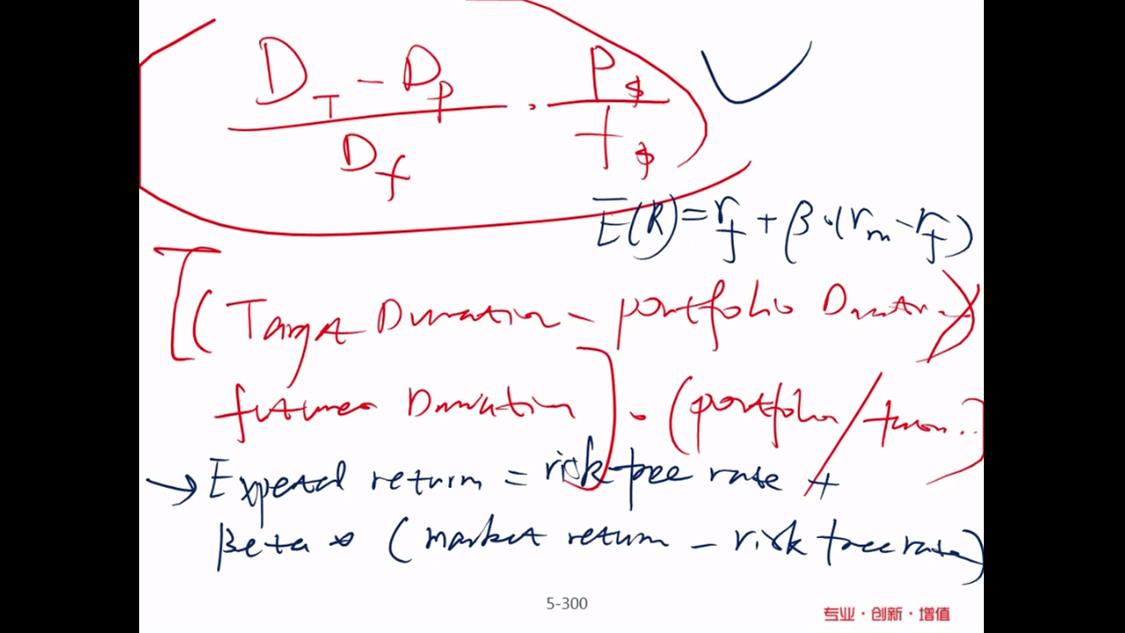 D_T - D_p / D_f · P_$ / f_$
E(R) = r_f + β · (r_m - r_f)
[(Target Duration - portfolio Duratn)/
futures Duration] · (portfolio/
→ Expected return = risk free rate +
Beta * (market return - risk free rate)
5-300
专业·创新·增值